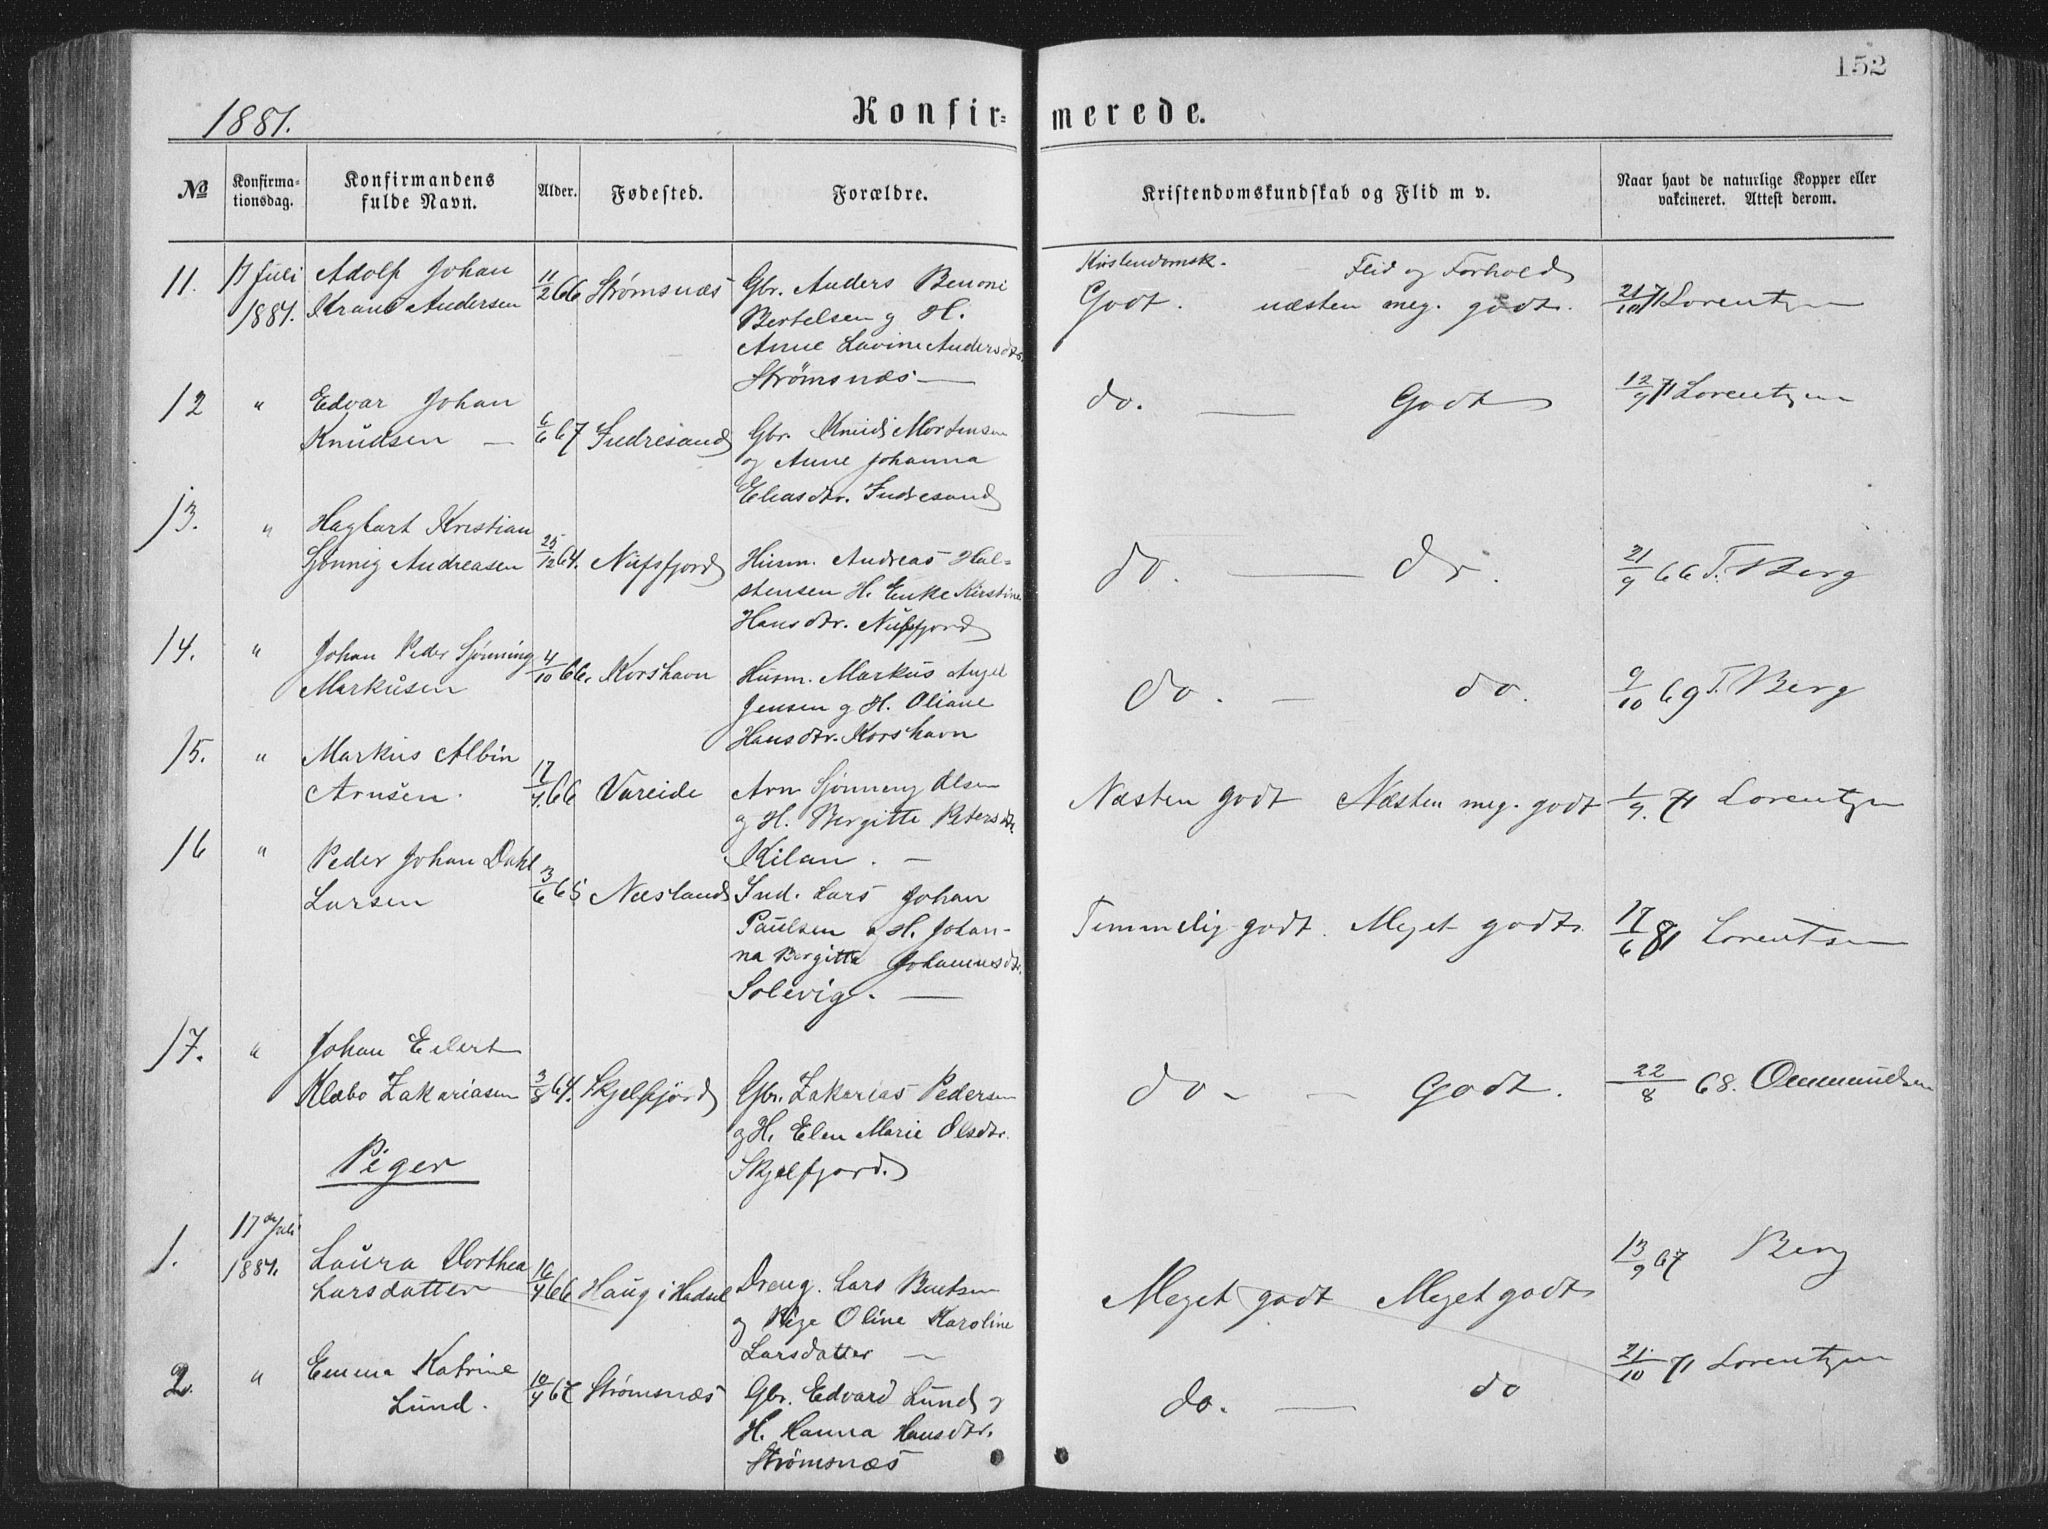 152
1881.
Konfir= merede.
No
Konfirma-
tionsdag.
Konfirmandens
fulde Navn.
Alder.
Fødested.
Forældre.
Kristendomskundskab og Flid m v.
Naar havt de naturlige Kopper eller
vakcineret. Attest derom.
11. 17 Juli Adolf Johan 11/2 66 Strømsnæs Gbr. Anders Benoni
1881. Krane Andersen
Bertelsen og H.
Anne Lavine Andersdtr.
Strømsnæs —
Kristendomsk. — Flid og Forhold
Godt. næsten meg. godt. 21/10 71 Lorentzen
12 " Edvar Johan
Knudsen — 6/6 67 Indresand Gbr. Knud Mortensen
og Anne Johanna
Eliasdtr. Indresand
do. — Godt 12/9 71 Lorentzen
13. " Hagbart Kristian
Sjønnig Andreasen 25/12 64. Nufsfjord Husm. Andreas Hal-
stensen H. Enke Kirstine
Hansdtr. Nufsfjord
do. — do. 21/9 66 T. Berg
14. " Johan Peder Sjønning
Markusen 4/10 66. Korshavn Husm. Markus Angel
Jensen og H. Oliane
Hansdtr. Korshavn
do. — do. 9/10 69 T. Berg
15. " Markus Albin
Arnsen. 17/4 66 Vareide Arn Sjønning Olsen
og H. Bergitte Petersdtr.
Kilan. —
Næsten godt Næsten meg. godt 1/9. 71 Lorentzen
16 " Peder Johan Dahl
Larsen 3/6 65 Næsland Ind. Lars Johan
Paulsen og H. Johan-
na Bergitta Johannesdtr.
Solevig. —
Temmelig godt. Meget godt. 17/6 81 Lorentsen
17. " Johan Eilert
Klæbo Zakariasen 3/8 64. Skjelfjord Gbr. Zakarias Pedersen
og H. Elen Marie Olsdtr.
Skjelfjord.
do. — Godt. 22/8 68. Ommundsen
Piger
1. 17de Juli
1881. Laura Dorthea
Larsdatter 16/4 66 Haug i Hadsel Dreng. Lars Bentsen
og Pige Oline Karoline
Larsdatter —
Meget godt Meget godt 13/9 67 Berg
2. " Emma Katrine
Lund. 10/4 67 Strømsnæs Gbr. Edvard Lund og
H. Hanna Hansdtr.
Strømsnæs
do. — do 21/10 71 Lorentzen